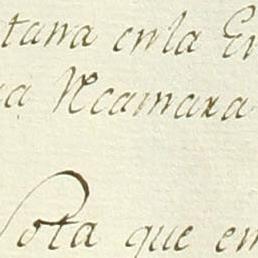 tana en la En
a Recamara
Nota que en